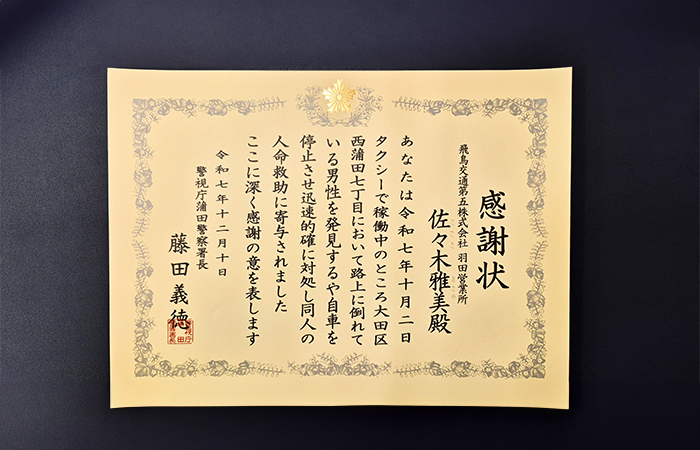 感謝状
飛鳥交通第五株式会社 羽田営業所
佐々木雅美殿
あなたは令和七年十月二日
タクシーで稼働中のところ大田区
西蒲田七丁目において路上に倒れて
いる男性を発見するや自車を
停止させ迅速的確に対処し同人の
人命救助に寄与されました
ここに深く感謝の意を表します
令和七年十二月十日
警視庁蒲田警察署長
藤田義徳